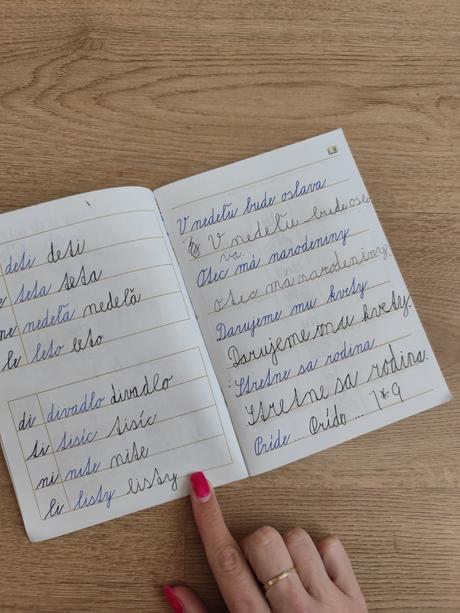 deti deti
teta teta
ne nedeľa nedeľa
le leto leto
di divadlo divadlo
ti tisíc tisíc
ni nite nite
li listy listy
V nedeľu bude oslava
V nedeľu bude osla
va.
Otec má narodeniny
Otec má narodeniny.
Darujeme mu kvety
Darujeme mu kvety.
Stretne sa rodina
Stretne sa rodina.
Príde ... Prído ... 1*9